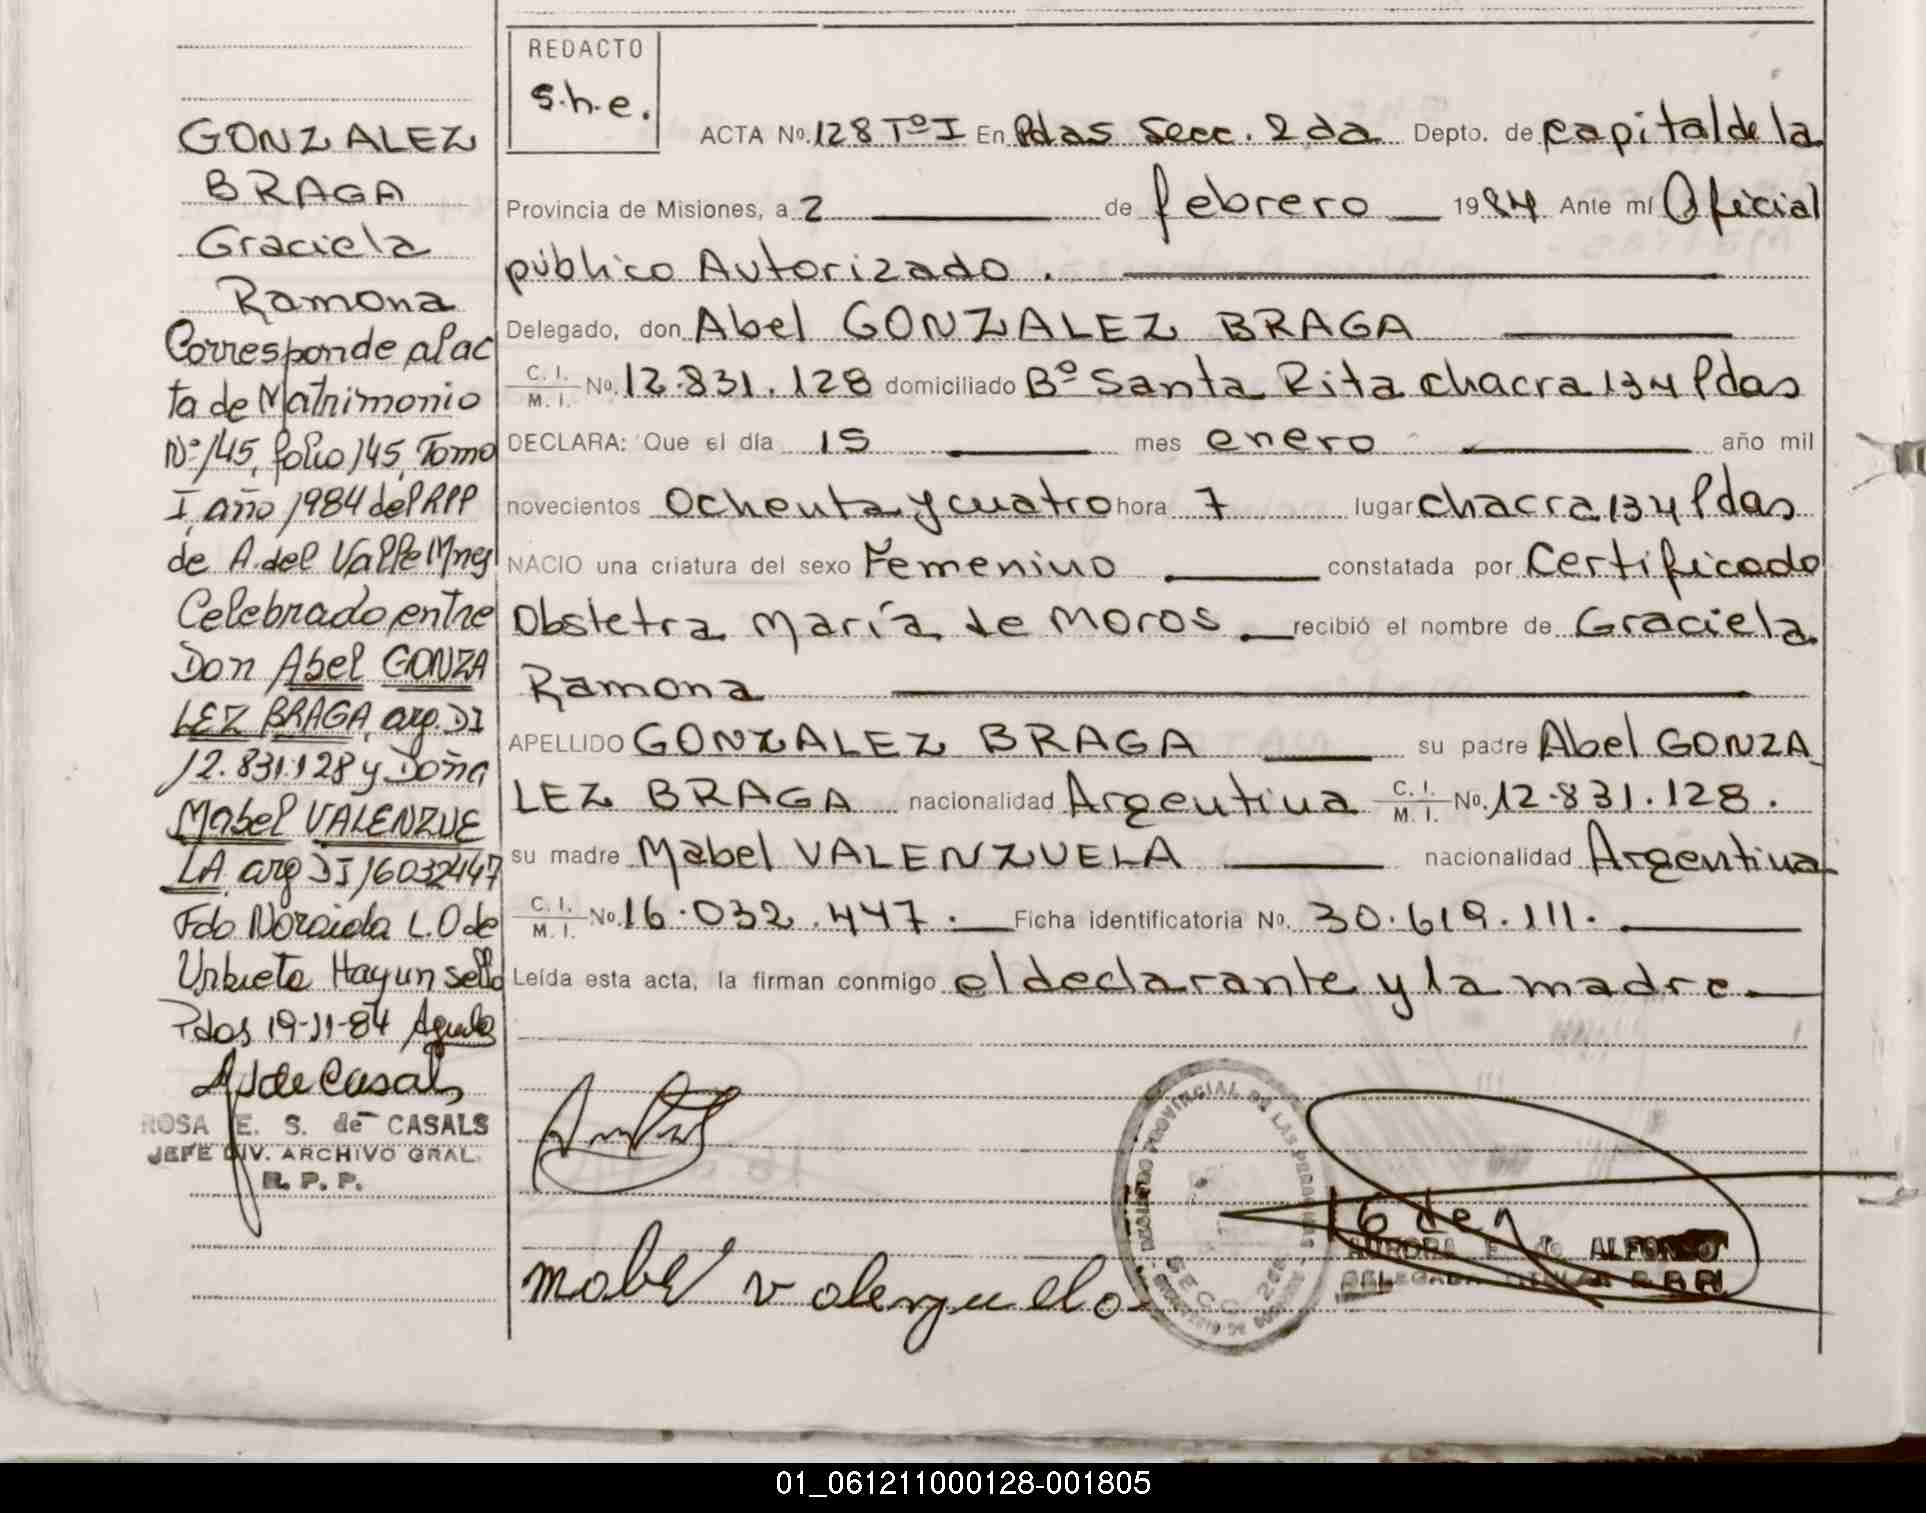 GONZALEZ
BRAGA
Graciela
Ramona
Corresponde al ac
ta de Matrimonio
Nº 145, folio 145, Tomo
I, año 1984 del RPP
de A. del Valle Mnes
Celebrado entre
Don Abel GONZA
LEZ BRAGA, arg. DI
12.831.128 y Doña
Mabel VALENZUE
LA arg DI 16032447
Fdo Noraida L. O de
Urbieta Hay un sello
Pdas 19-11-84
ROSA E. S. de CASALS
JEFE DIV. ARCHIVO GRAL.
R. P. P.
REDACTO
S.h.e.
ACTA Nº. 128 Tº I En Pdas Secc. 2da Depto. de capital de la
Provincia de Misiones, a 2 de febrero 1984 Ante mí Oficial
público Autorizado.
Delegado, don Abel GONZALEZ BRAGA
C. I. / M. I. Nº. 12.831.128 domiciliado Bº Santa Rita chacra 134 Pdas
DECLARA: Que el día 15 mes enero año mil
novecientos Ochenta y cuatro hora 7 lugar chacra 134 Pdas
NACIO una criatura del sexo Femenino constatada por Certificado
Obstetra María de Moros recibió el nombre de Graciela
Ramona
APELLIDO GONZALEZ BRAGA su padre Abel GONZA
LEZ BRAGA nacionalidad Argentina C. I. / M. I. Nº. 12.831.128.
su madre Mabel VALENZUELA nacionalidad Argentina
C. I. / M. I. Nº. 16.032.447. Ficha identificatoria Nº. 30.619.111.
Leída esta acta, la firman conmigo el declarante y la madre
REGISTRO PROVINCIAL DE LAS PERSONAS
SECC. 2da
AURORA F. de ALFONSO
DELEGADA TITULAR R.P.P.
Mabel Valenzuela
01_061211000128-001805